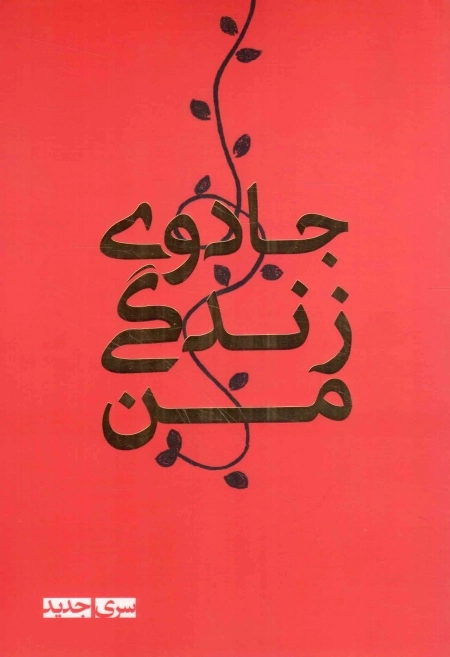 جادوی
زندگی
من
سری جدید